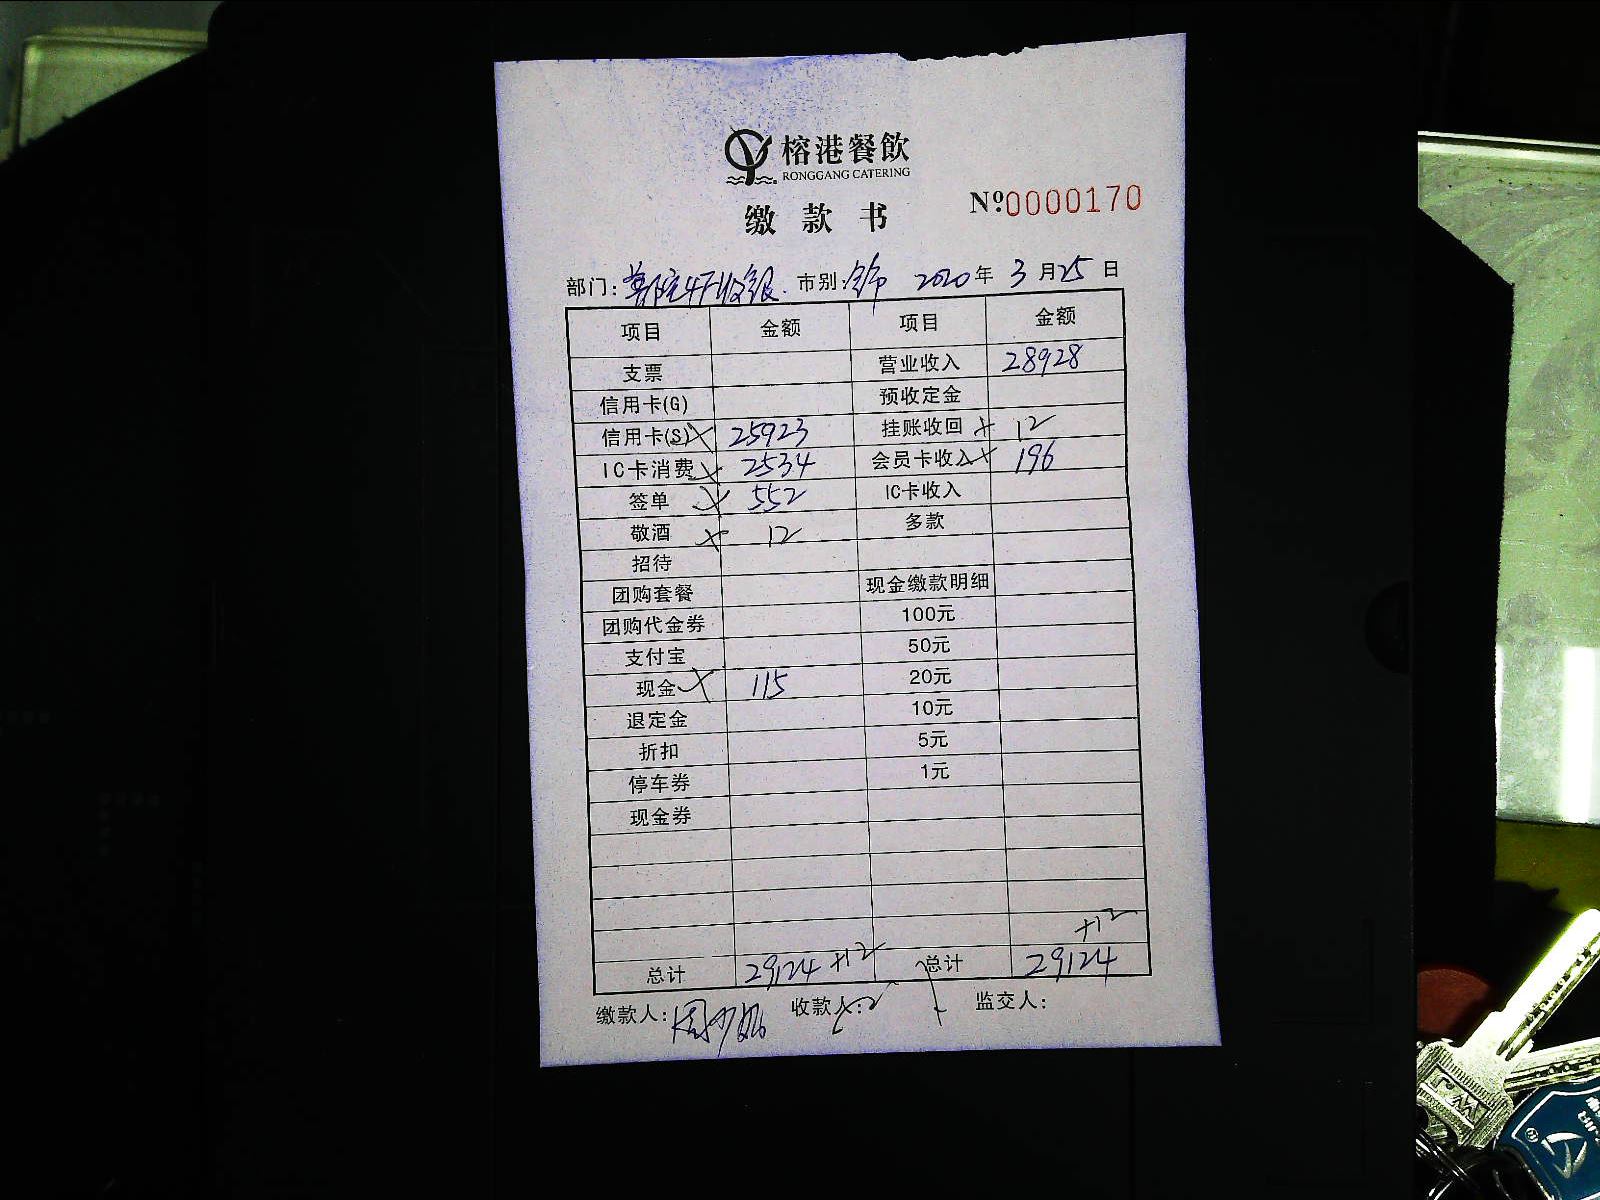 榕港餐飲
RONGGANG CATERING
缴款书 Nº0000170
部门: 4F收银. 市别: 全市 2020年3月25日
项目 金额 项目 金额
支票 营业收入 28928
信用卡(G) 预收定金
信用卡(S) 25923 挂账收回 + 12
IC卡消费 2534 会员卡收入 196
签单 552 IC卡收入
敬酒 12 多款
招待
团购套餐 现金缴款明细
团购代金券 100元
支付宝 50元
现金 115 20元
退定金 10元
折扣 5元
停车券 1元
现金券
+12
总计 29124 +12 总计 29124
缴款人: 收款人: 监交人: